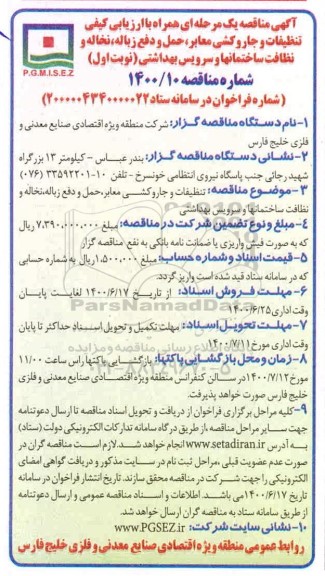 آگهی مناقصه یک مرحله ای همراه با ارزیابی کیفی
تنظیفات و جاروکشی معابر، حمل و دفع زباله، نخاله و
نظافت ساختمانها و سرویس بهداشتی (نوبت اول)
P.G.M.I.S.E.Z
شماره مناقصه ۱۴۰۰/۱۰
(شماره فراخوان در سامانه ستاد ۲۰۰۰۰۰۴۳۴۰۰۰۰۰۲۲)
۱-نام دستگاه مناقصه گزار: شرکت منطقه ویژه اقتصادی صنایع معدنی و
فلزی خلیج فارس
۲- نشانی دستگاه مناقصه گزار: بندر عباس - کیلومتر ۱۳ بزرگراه
شهید رجائی جنب پاسگاه نیروی انتظامی خونسرخ - تلفن ۱۰-۳۳۵۹۲۲۰۱ (۰۷۶)
۳-موضوع مناقصه: تنظیفات و جاروکشی معابر، حمل و دفع زباله، نخاله و
نظافت ساختمانها و سرویس بهداشتی
۴-مبلغ و نوع تضمین شرکت در مناقصه: مبلغ ۷,۳۹۰,۰۰۰,۰۰۰ ریال
که به صورت فیش واریزی یا ضمانت نامه بانکی به نفع مناقصه گزار
۵-قیمت اسناد و شماره حساب: مبلغ ۱,۵۰۰,۰۰۰ ریال به شماره حسابی
که در سامانه ستاد قید شده است واریز گردد.
۶-مهلت فروش اسناد: از تاریخ ۱۴۰۰/۶/۱۷ لغایت پایان
وقت اداری ۱۴۰۰/۶/۲۵
۷-مهلت تحویل اسناد: مهلت تکمیل و تحویل اسناد حداکثر تا پایان
وقت اداری مورخ ۱۴۰۰/۷/۱۱
۸-زمان و محل بازگشایی پاکتها: بازگشایی پاکتها راس ساعت ۱۱/۰۰
مورخ ۱۴۰۰/۷/۱۲ در سالن کنفرانس منطقه ویژه اقتصادی صنایع معدنی و فلزی
خلیج فارس صورت خواهد پذیرفت.
۹-کلیه مراحل برگزاری فراخوان از دریافت و تحویل اسناد مناقصه تا ارسال دعوتنامه
جهت سایر مراحل مناقصه، از طریق درگاه سامانه تدارکات الکترونیکی دولت (ستاد)
به آدرس www.setadiran.ir انجام خواهد شد. لازم است مناقصه گران در
صورت عدم عضویت قبلی، مراحل ثبت نام در سایت مذکور و دریافت گواهی امضای
الکترونیکی را جهت شرکت در مناقصه محقق سازند. تاریخ انتشار فراخوان در سامانه
تاریخ ۱۴۰۰/۶/۱۷ می باشد. اطلاعات و اسناد مناقصه عمومی و ارسال دعوتنامه
از طریق سامانه ستاد به مناقصه گران ارسال خواهد شد.
۱۰-نشانی سایت شرکت: www.PGSEZ.ir
روابط عمومی منطقه ویژه اقتصادی صنایع معدنی و فلزی خلیج فارس